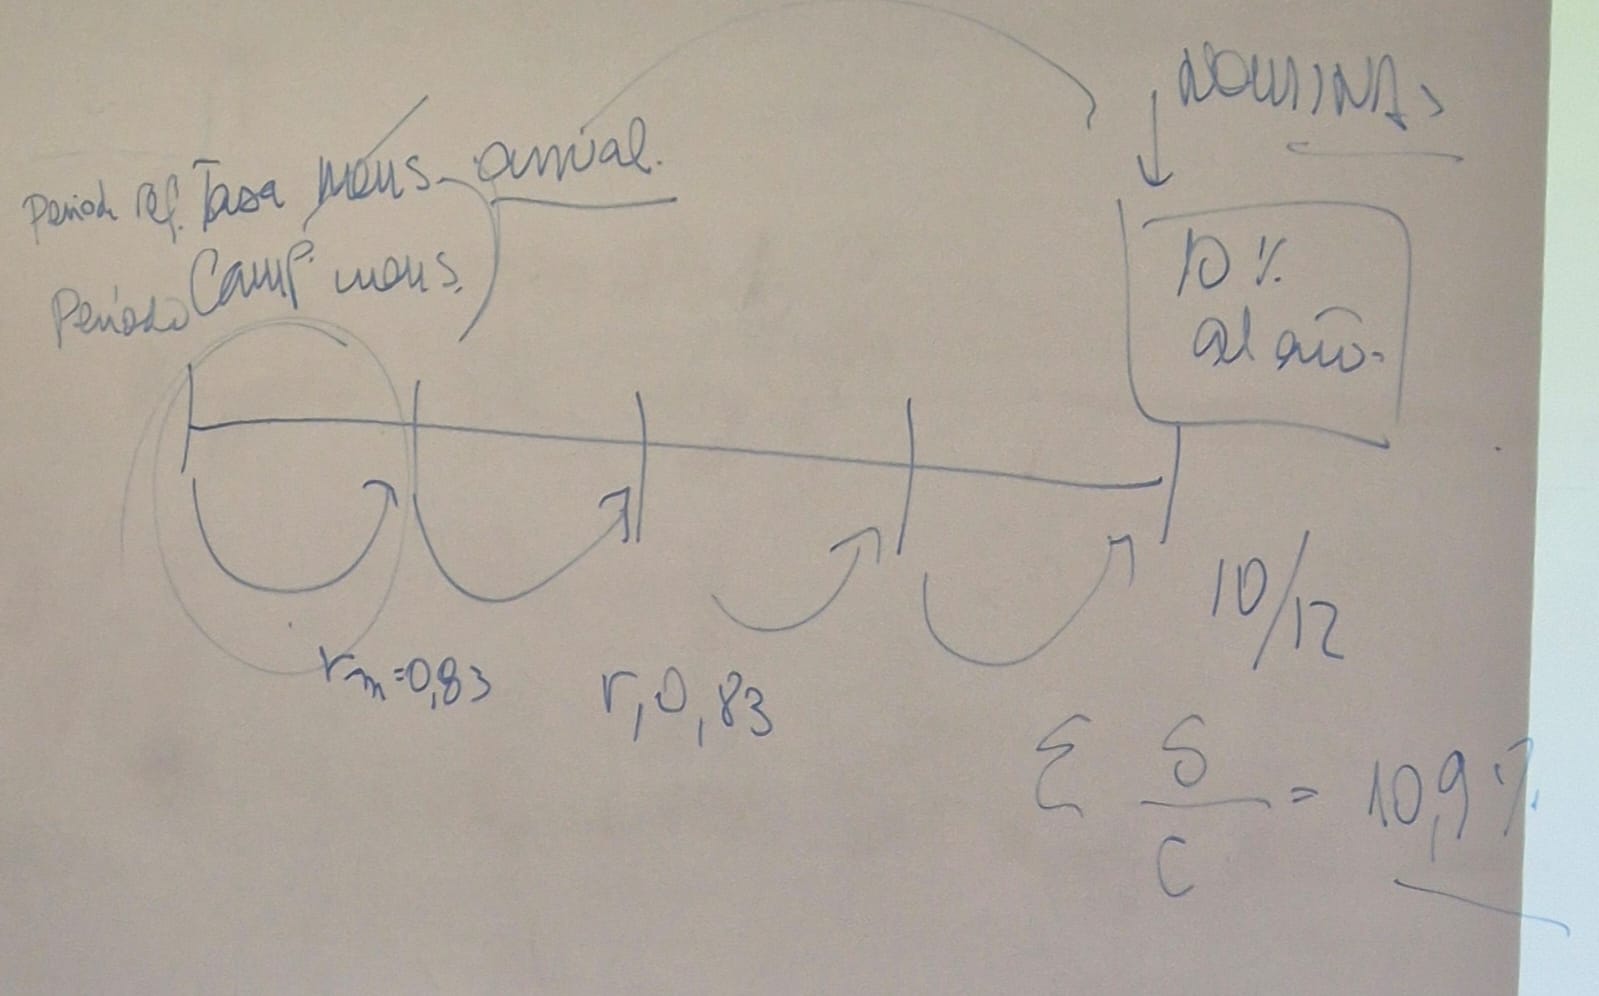 NOMINAL
Period ref. Tasa mens. anual.
Período Camp mens.
10 %
al año.
10/12
rm=0,83
r, 0,83
Σ S/C = 10,9 %